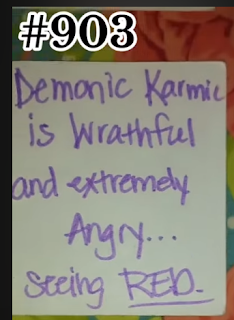 #903
Demonic Karmic
is Wrathful
and extremely
Angry...
Seeing RED.